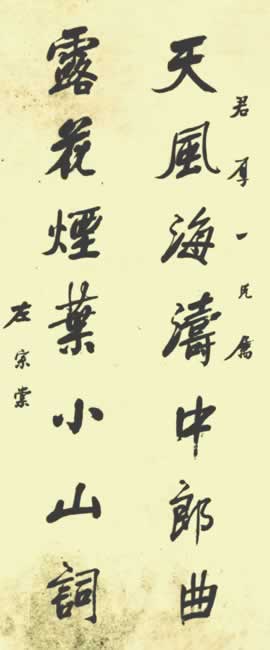 君厚一兄属
天風海濤中郎曲
露花煙葉小山詞
左宗棠